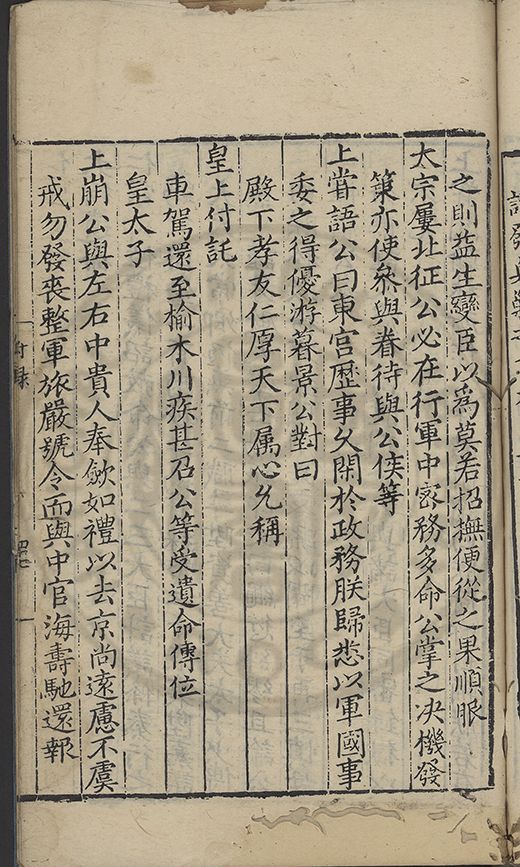 之則益生變臣以為莫若招撫便從之果順服
太宗屢北征公必在行軍中宻務多命公掌之决機發
䇿亦使叅與眷待與公侯等
上甞語公曰東宫歷事乆閑於政務朕歸悉以軍國事
委之得優游暮景公對曰
殿下孝友仁厚天下属心允稱
皇上付託
車駕還至榆木川疾甚召公等受遺命傳位
皇太子
上崩公與左右中貴人奉歛如禮以去京尚逺慮不虞
戒勿發喪整軍旅嚴號令而與中官海壽馳還報
付錄